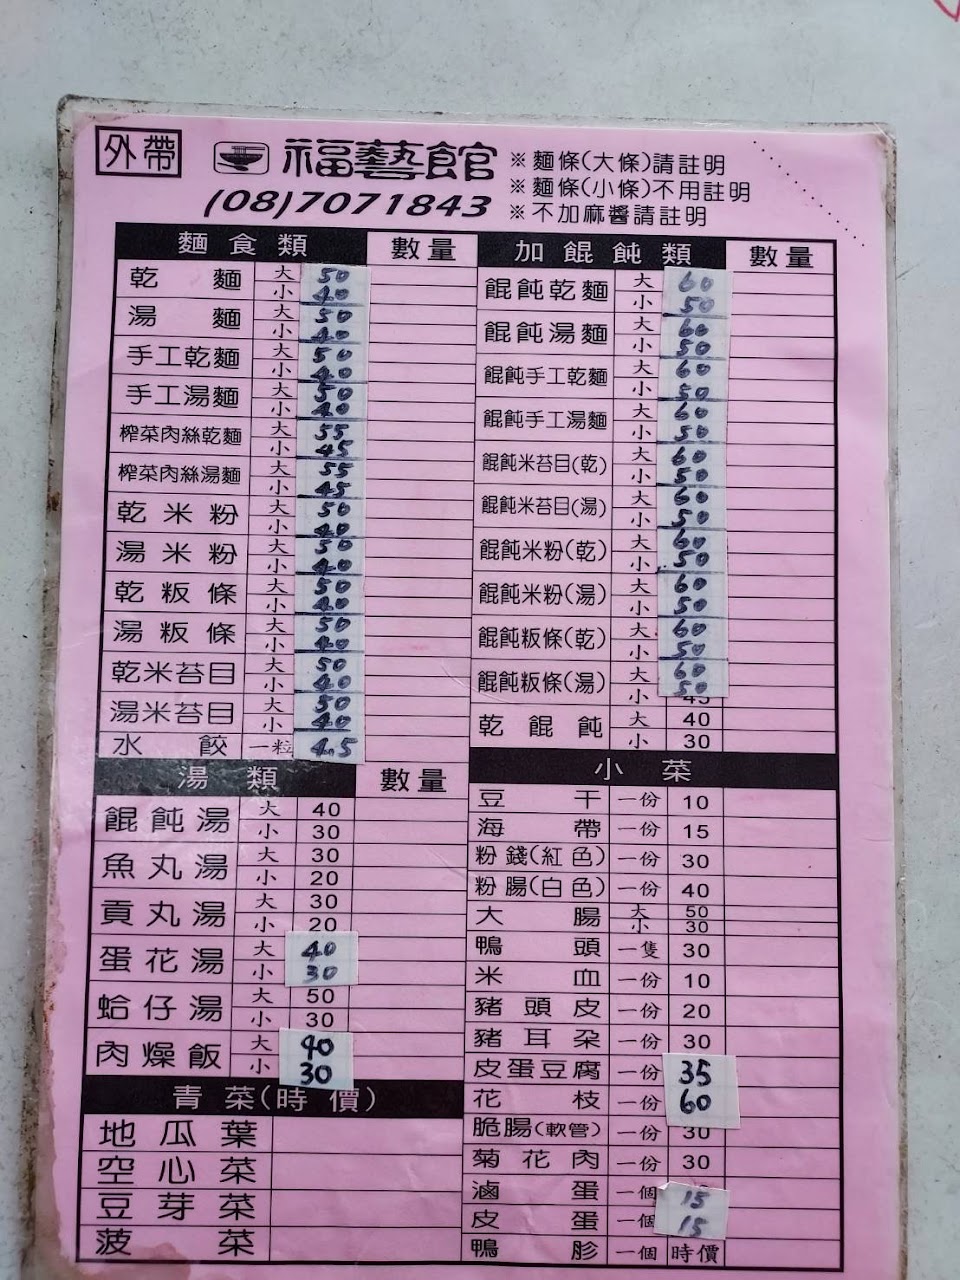 外帶
福藝館
(08)7071843
※麵條(大條)請註明
※麵條(小條)不用註明
※不加麻醬請註明
麵食類 數量
乾麵 大 50
小 40
湯麵 大 50
小 40
手工乾麵 大 50
小 40
手工湯麵 大 50
小 40
榨菜肉絲乾麵 大 55
小 45
榨菜肉絲湯麵 大 55
小 45
乾米粉 大 50
小 40
湯米粉 大 50
小 40
乾粄條 大 50
小 40
湯粄條 大 50
小 40
乾米苔目 大 50
小 40
湯米苔目 大 50
小 40
水餃 一粒 4.5
湯類 數量
餛飩湯 大 40
小 30
魚丸湯 大 30
小 20
貢丸湯 大 30
小 20
蛋花湯 大 40
小 30
蛤仔湯 大 50
小 30
肉燥飯 大 40
小 30
青菜(時價)
地瓜葉
空心菜
豆芽菜
菠菜
加餛飩類 數量
餛飩乾麵 大 60
小 50
餛飩湯麵 大 60
小 50
餛飩手工乾麵 大 60
小 50
餛飩手工湯麵 大 60
小 50
餛飩米苔目(乾) 大 60
小 50
餛飩米苔目(湯) 大 60
小 50
餛飩米粉(乾) 大 60
小 50
餛飩米粉(湯) 大 60
小 50
餛飩粄條(乾) 大 60
小 50
餛飩粄條(湯) 大 60
小 50
乾餛飩 大 40
小 30
小菜
豆干 一份 10
海帶 一份 15
粉錢(紅色) 一份 30
粉腸(白色) 一份 40
大腸 大 50
小 30
鴨頭 一隻 30
米血 一份 10
豬頭皮 一份 20
豬耳朵 一份 30
皮蛋豆腐 一份 35
花枝 一份 60
脆腸(軟管) 一份 30
菊花肉 一份 30
滷蛋 一個 15
皮蛋 一個 15
鴨胗 一個 時價